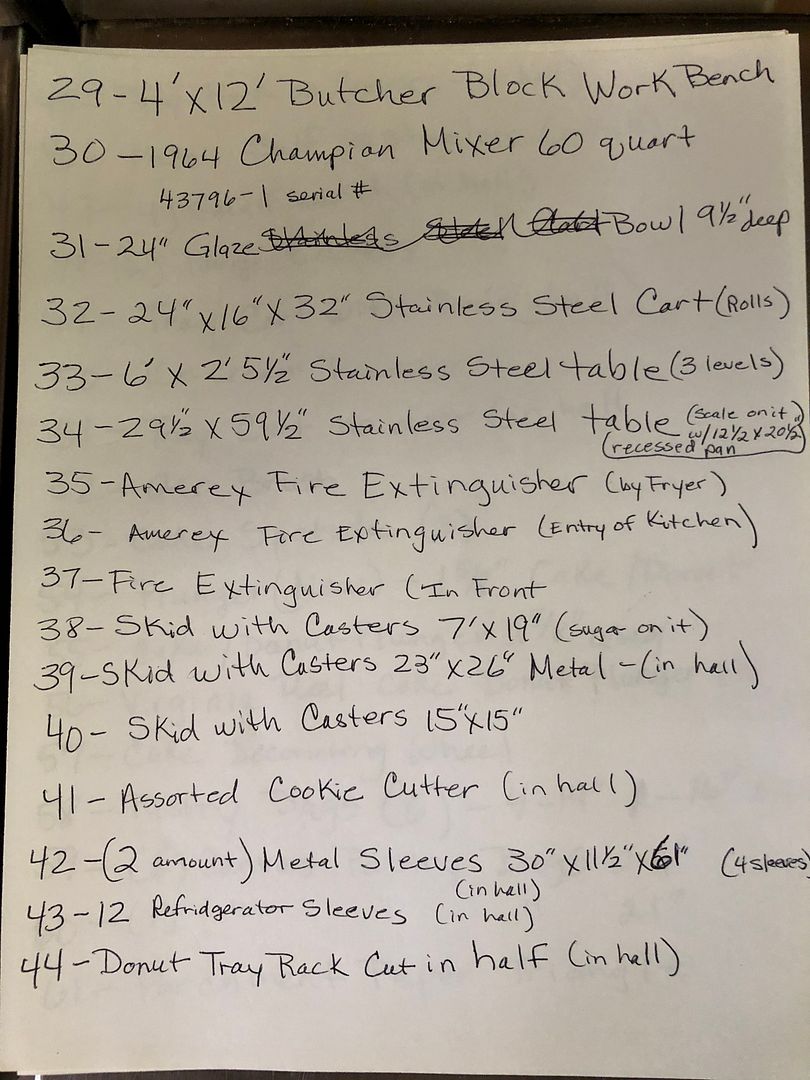 29-4'x12' Butcher Block Work Bench
30-1964 Champion Mixer 60 quart
43796-1 serial #
31-24" Glaze Bowl 9½" deep
32-24"x16"x32" Stainless Steel Cart (Rolls)
33-6' x 2' 5½" Stainless Steel table (3 levels)
34-29½ x 59½" Stainless Steel table (Scale on it)
w/12½ x 20½
recessed pan
35-Amerex Fire Extinguisher (by Fryer)
36- Amerex Fire Extinguisher (Entry of Kitchen)
37-Fire Extinguisher (In Front
38-Skid with Casters 7'x19" (sugar on it)
39-Skid with Casters 23"x26" Metal-(in hall)
40- Skid with Casters 15"x15"
41-Assorted Cookie Cutter (in hall)
42-(2 amount) Metal Sleeves 30"x11½"x61" (4 sleeves)
(in hall)
43-12 Refridgerator Sleeves (in hall)
44-Donut Tray Rack Cut in half (in hall)